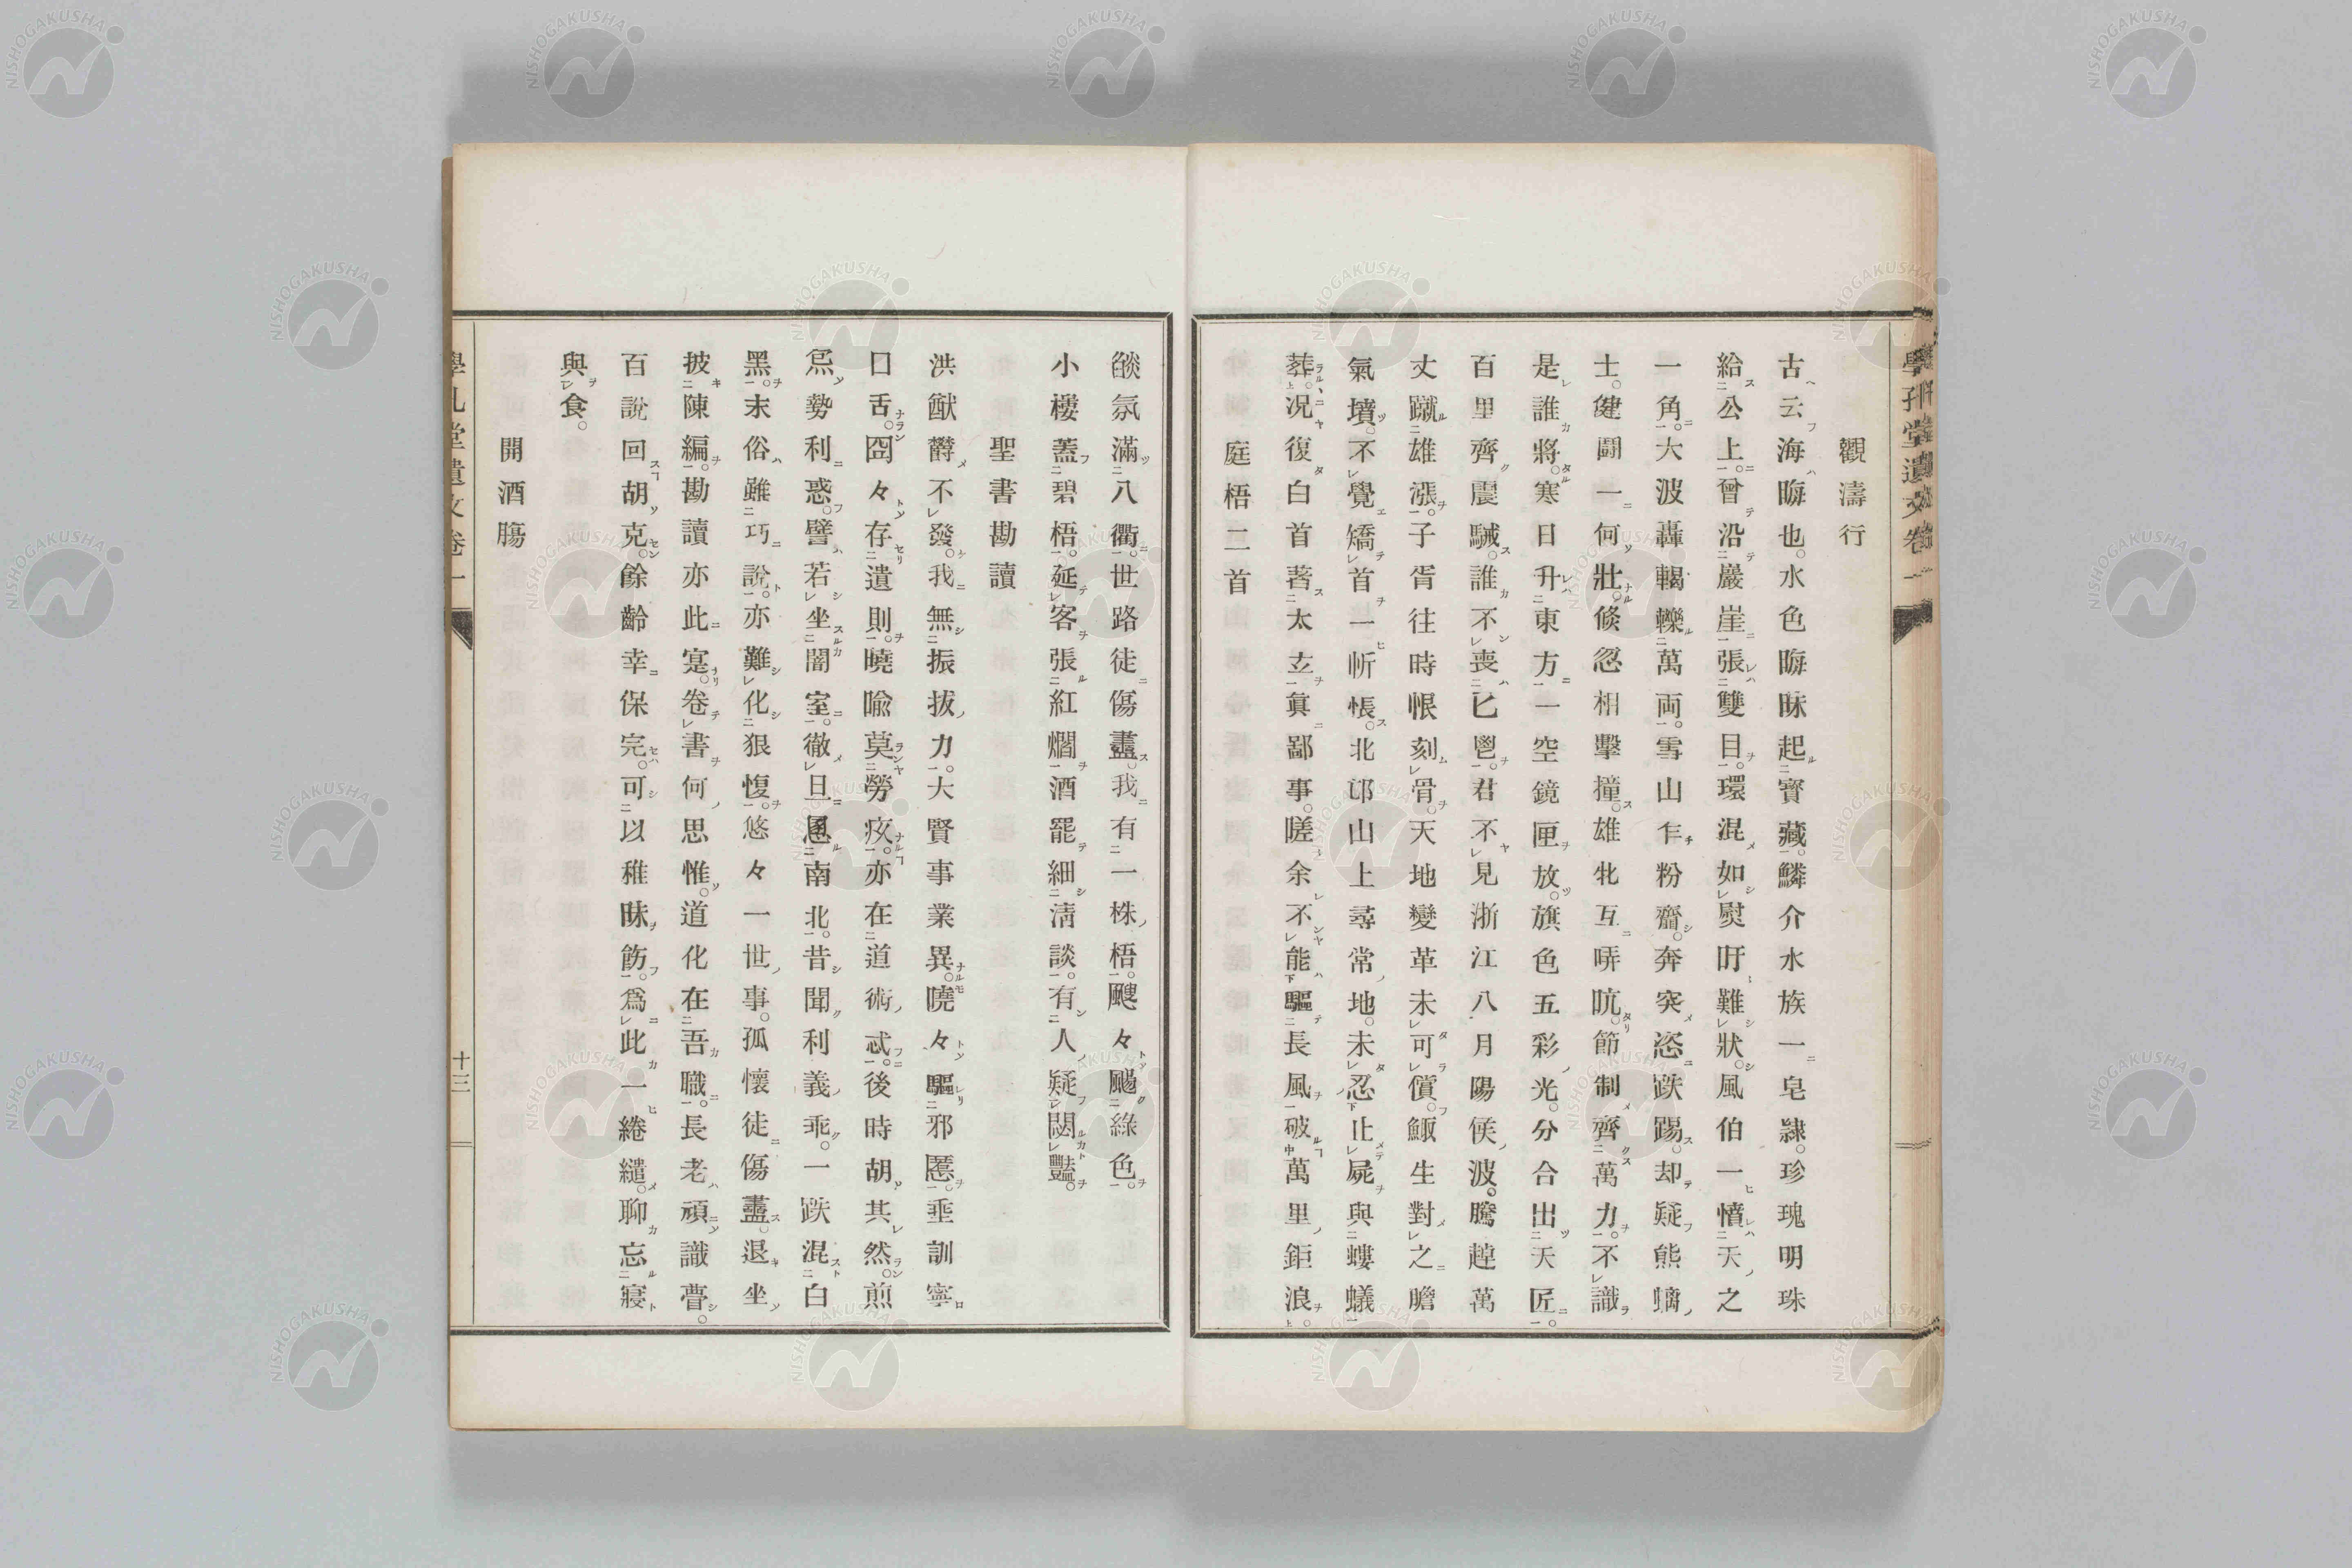 學孔堂遺文卷一
觀濤行
古云海晦也。水色晦昧起寶藏。鱗介水族一皂隷。珍瑰明珠
給公上。曾沿巖崖張雙目。環混如熨盱難狀。風伯一憤天之
一角。大波轟輵轢萬両。雪山乍粉齏。奔突恣跌踼。却疑熊螭
士。健鬪一何壯。倐忽相擊撞。雄牝互哢吭。節制齊萬力。不識
是誰將。寒日升東方一空鏡匣放。旗色五彩光。分合出天匠。
百里齊震駴。誰不喪匕鬯。君不見浙江八月陽侯波。騰趠萬
丈蹴雄漲。子胥往時恨刻骨。天地變革未可償。鯫生對之膽
氣壙。不覺矯首一忻悵。北邙山上尋常地。未忍止屍與螻蟻
葬。况復白首著太玄眞鄙事。嗟余不能驅長風破萬里鉅浪。
庭梧二首
餤氛滿八衢。世路徒傷盡。我有一株梧。颼々颺綠色。
小樓蓋碧梧。延客張紅燗酒罷細淸談。有人疑閟豔。
聖書勘讀
洪猷欝不發。我無振拔力。大賢事業異。嘵々驅邪慝。埀訓寧
口舌。囶々存遺則。曉喩莫勞疚。亦在道術忒。後時胡其然。煎
烝勢利惑。譬若坐闇室。徹旦南北。昔聞利義乖。一跌混白
黑。末俗雖巧說。亦難化狠愎。悠々一世事。孤懷徒傷盡。退坐
披陳編。勘讀亦此寔。卷書何思惟。道化在吾職。長老頑識瞢。
百說回胡克。餘齡幸保完。可以稚昧飭。爲此一綣繾。聊忘寢
與食。
開酒膓
學孔堂遺文卷一
十三